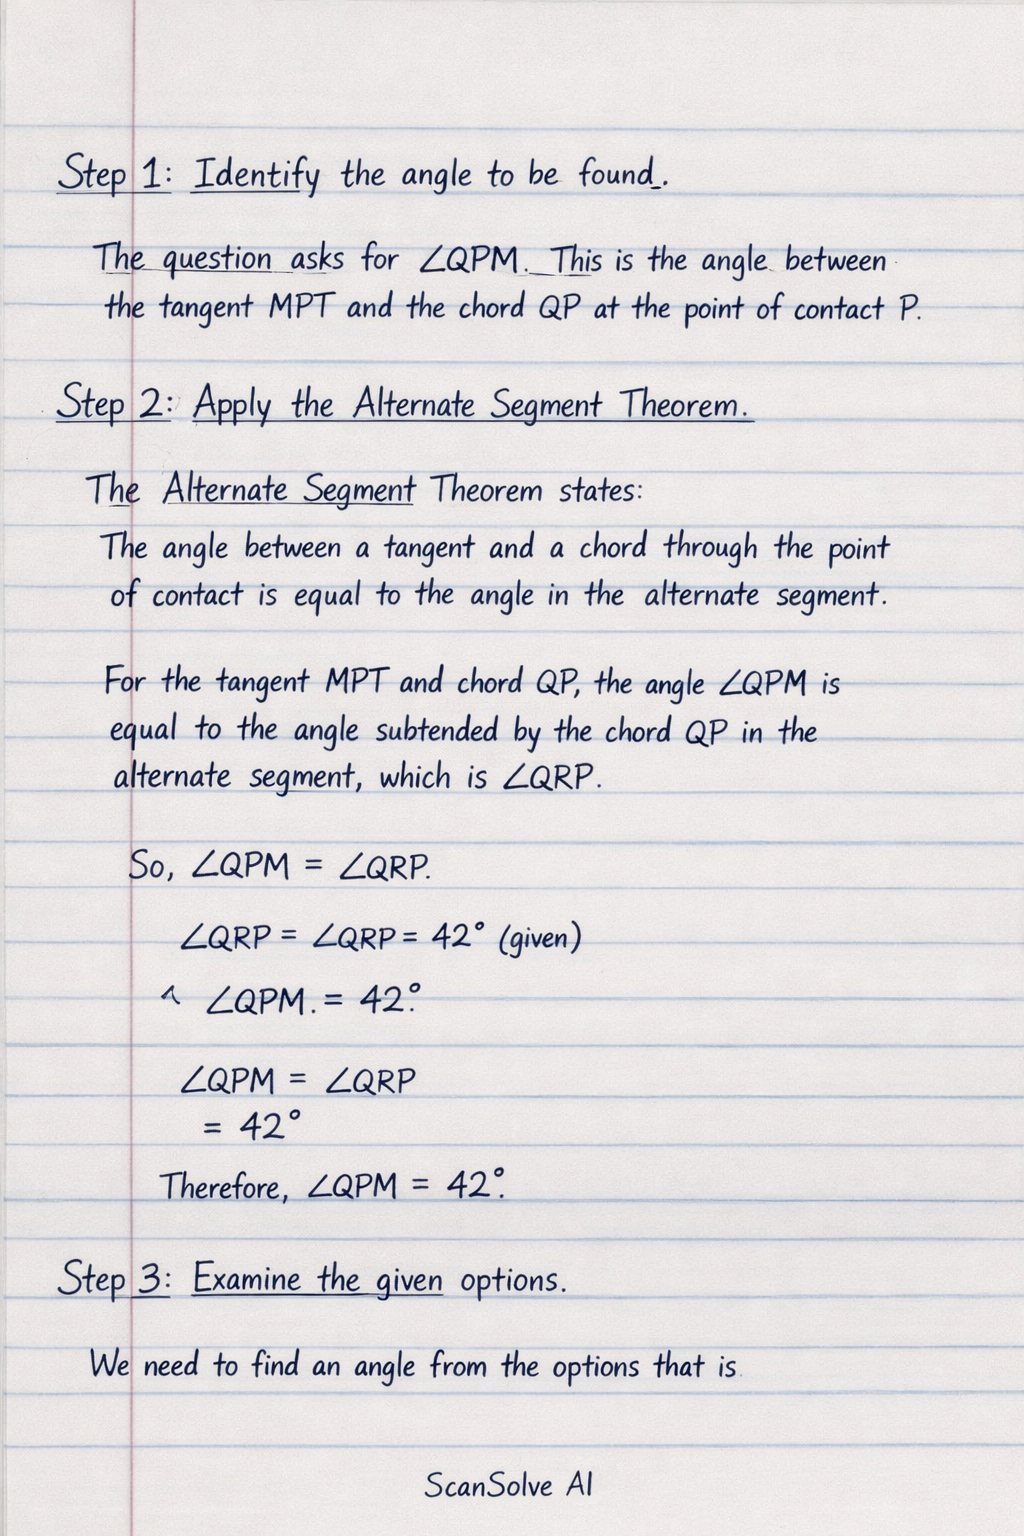 Step 1: Identify the angle to be found.
The question asks for ∠QPM. This is the angle between
the tangent MPT and the chord QP at the point of contact P.
Step 2: Apply the Alternate Segment Theorem.
The Alternate Segment Theorem states:
The angle between a tangent and a chord through the point
of contact is equal to the angle in the alternate segment.
For the tangent MPT and chord QP, the angle ∠QPM is
equal to the angle subtended by the chord QP in the
alternate segment, which is ∠QRP.
So, ∠QPM = ∠QRP.
∠QRP = ∠QRP = 42° (given)
∠QPM. = 42°.
∠QPM = ∠QRP
= 42°
Therefore, ∠QPM = 42°.
Step 3: Examine the given options.
We need to find an angle from the options that is
ScanSolve AI